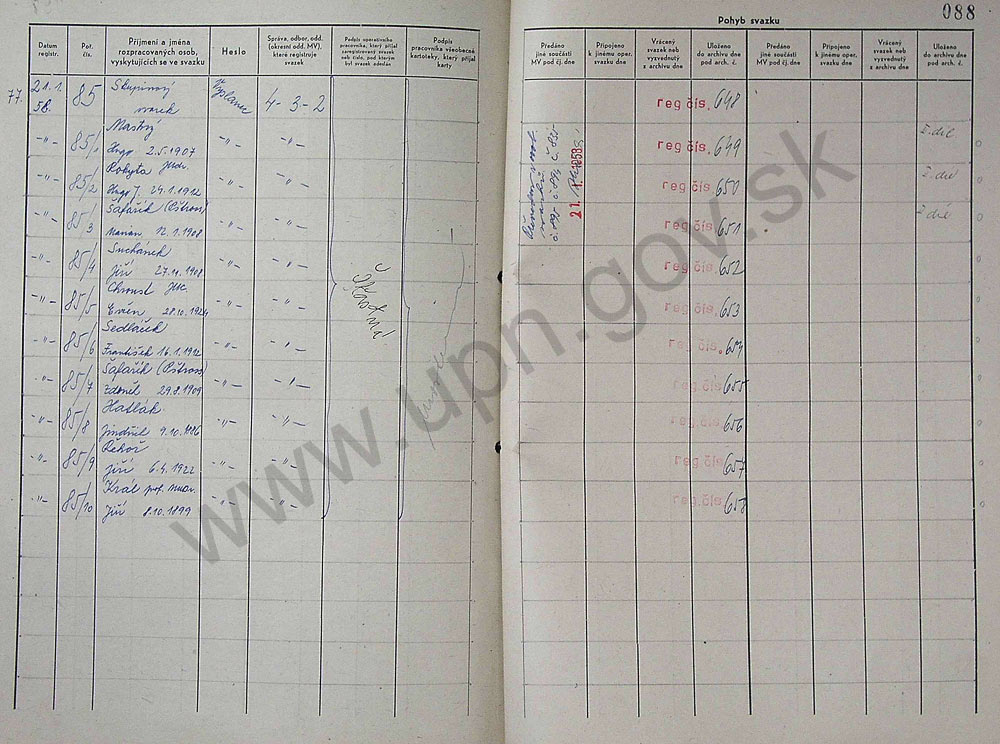 088
Pohyb svazku
Datum registr.
Poř. čís.
Příjmení a jména rozpracovaných osob, vyskytujících se ve svazku
Heslo
Správa, odbor, odd. (okresní odd. MV), které registruje svazek
Podpis operativního pracovníka, který přijal zaregistrovaný svazek neb číslo, pod kterým byl svazek odeslán
Podpis pracovníka všeobecné kartoteky, který přijal karty
Předáno jiné součásti MV pod čj. dne
Připojeno k jinému oper. svazku dne
Vrácený svazek neb vyzvednutý z archivu dne
Uloženo do archivu dne pod arch. č.
Předáno jiné součásti MV pod čj. dne
Připojeno k jinému oper. svazku dne
Vrácený svazek neb vyzvednutý z archivu dne
Uloženo do archivu dne pod arch. č.
77. 21.1. 58. 85 Skupinový svazek Vyslanec 4-3-2 reg čís. 648
-"- 85/1 Mastný Hugo 2.5.1907 -"- -"- reg čís. 649 I. díl
-"- 85/2 Rokyta JUDr. Hugo J. 24.1.1912 -"- -"- reg čís. 650 I. díl
-"- 85/3 Šafařík (Pštross) 12.1.1908 -"- -"- reg čís. 651 I díl
-"- 85/4 Suchánek Jiří 27.11.1908 -"- -"- reg čís. 652
-"- 85/5 Chroust Evžen 28.10.1924 -"- -"- reg čís. 653
-"- 85/6 Sedláček František 16.1.1912 -"- -"- reg čís. 654
-"- 85/7 Šafařík (Pštross) Zdeněk 29.8.1909 -"- -"- reg čís. 655
-"- 85/8 Hatlák Jindřich 9.10.1886 -"- -"- reg čís. 656
-"- 85/9 Řehoř Jiří 6.4.1922 -"- -"- reg čís. 657
-"- 85/10 Král prof. MUDr. Jiří 8.10.1899 -"- -"- reg čís. 658
Šťastná
www.upn.gov.sk